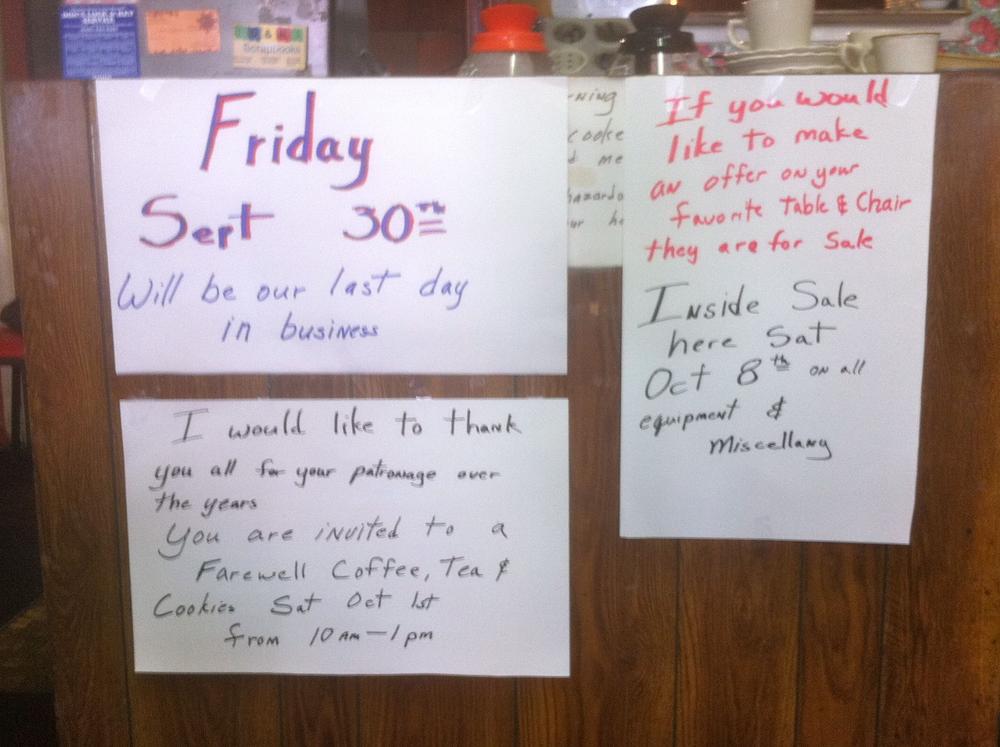 Scrapbooks
Friday
Sept 30TH
Will be our last day
in business
I would like to thank
you all for your patronage over
the years
You are invited to a
Farewell Coffee, Tea &
Cookies Sat Oct 1st
from 10 Am - 1 pm
If you would
like to make
an offer on your
favorite Table & Chair
they are for Sale
Inside Sale
here Sat
Oct 8th on all
equipment &
Miscellany